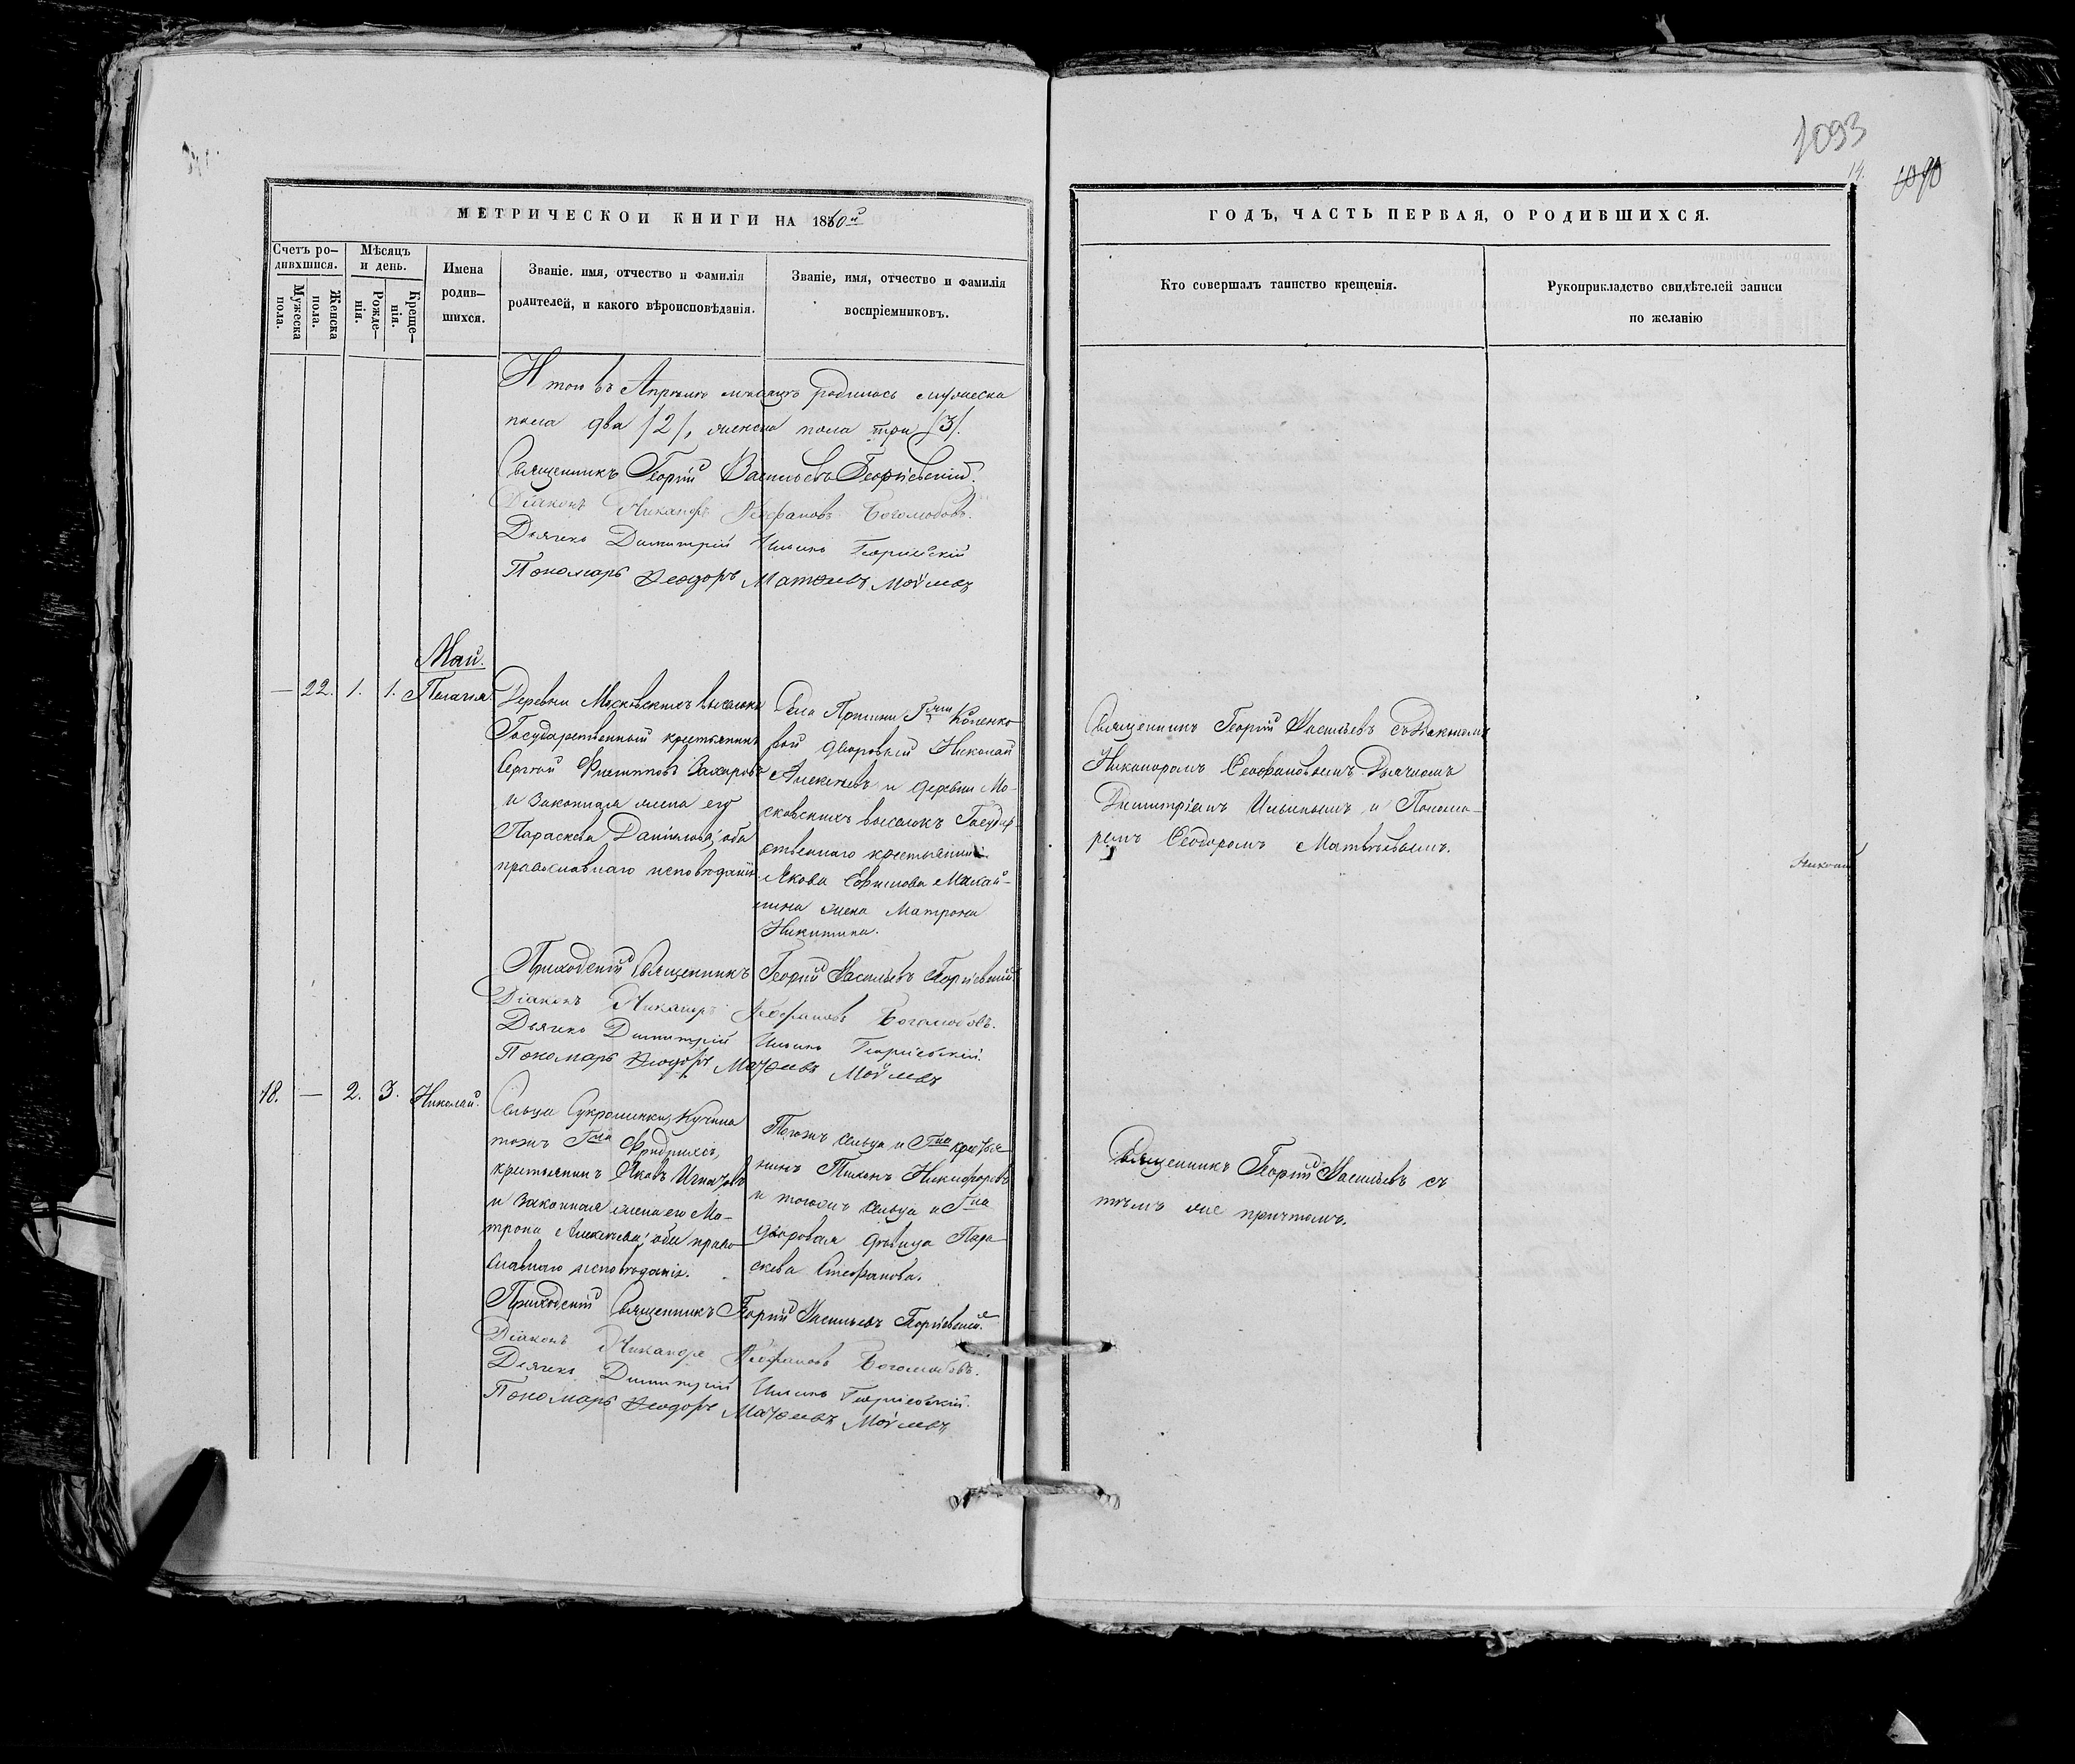 1093
14.
МЕТРИЧЕСКОЙ КНИГИ НА 1860й
ГОДЪ, ЧАСТЬ ПЕРВАЯ, О РОДИВШИХСЯ.
Счетъ ро-
дившихся.
Мужеска
пола.
Женска
пола.
Мѣсяцъ
и день.
Рожде-
нія.
Креще-
нія.
Имена
родив-
шихся.
Званіе. имя, отчество и фамилія
родителей, и какого вѣроисповѣданія.
Званіе, имя, отчество и фамилія
воспріемниковъ.
Кто совершалъ таинство крещенія.
Рукоприкладство свидѣтелей записи
по желанію
Итого въ Апрѣлѣ мѣсяцѣ родилось мужеска
пола два /2/, женска пола три /3/.
Священникъ Георгій Васильевъ Георгіевскій.
Діаконъ Никаноръ Ѳеофановъ Боголюбовъ.
Дьячекъ Димитрій Ильинъ Георгіевскій
Пономарь Ѳеодоръ Матѳеевъ
Май.
— 22. 1. 1. Пелагія.
Деревни Московскихъ выселокъ
Государственный крестьянинъ
Сергѣй Филипповъ Захаровъ
и законная жена его
Параскева Даніилова; оба
православнаго исповѣданія.
Села Гжи
вой дворовый Николай
Алексѣевъ и деревни Мо-
сковскихъ выселокъ Государ-
ственнаго крестьянина
Якова Ефимова
жена Матрона
Никитина.
Священникъ Георгій Васильевъ съ Діакономъ
Никаноромъ Ѳеофановымъ Дьячкомъ
Димитріемъ Ильинымъ и Понома-
ремъ Ѳеодоромъ Матвѣевымъ.
Приходскій Священникъ Георгій Васильевъ Георгіевскій.
Діаконъ Никаноръ Ѳеофановъ Боголюбовъ.
Дьячекъ Димитрій Ильинъ Георгіевскій.
Пономарь Ѳеодоръ Матѳеевъ
18. — 2. 3. Николай.
Сельца
тожъ Гна
крестьянинъ Яковъ Игнатовъ
и законная жена его Ма-
трона Алексѣева; оба право-
славнаго исповѣданія.
Тогожъ сельца и Гна крестья-
нинъ Тихонъ Никифоровъ
и тогожъ сельца и Гна
дворовая дѣвица Пара-
скева Стефанова.
Священникъ Георгій Васильевъ съ
тѣмъ же причтомъ.
Приходскій Священникъ Георгій Васильевъ Георгіевскій.
Діаконъ Никаноръ Ѳеофановъ Боголюбовъ.
Дьячекъ Димитрій Ильинъ Георгіевскій.
Пономарь Ѳеодоръ Матѳеевъ